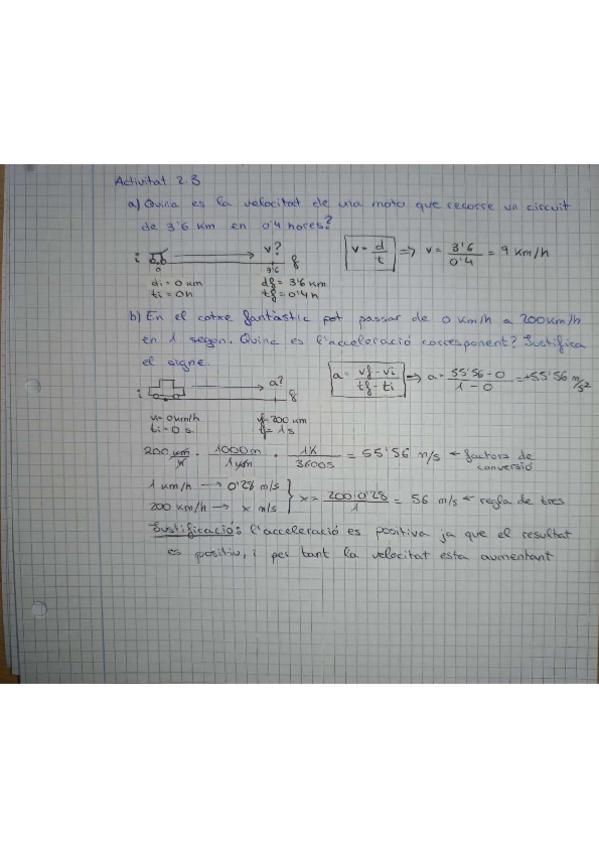 Activitat 2.3
a) Quina es la velocitat de una moto que recorre un circuit
de 3'6 km en 0'4 hores?
i v? f
0 3'6
di = 0 km df = 3'6 km
ti = 0h tf = 0'4 h
v = d/t ⇒ v = 3'6/0'4 = 9 km/h
b) En el cotxe fantàstic pot passar de 0 km/h a 200km/h
en 1 segon. Quina es l'acceleració corresponent? Justifica
el signe.
i a? f
vi = 0 km/h vf = 200 km
ti = 0 s. tf = 1 s
a = vf - vi / tf - ti → a = 55'56 - 0 / 1 - 0 = +55'56 m/s²
200 km/h · 1000m/1km · 1h/3600s = 55'56 m/s ← factors de
conversió
1 km/h → 0'28 m/s
200 km/h → x m/s
x = 200·0'28/1 = 56 m/s ← regla de tres
Justificació: l'acceleració es positiva ja que el resultat
es positiu, i per tant la velocitat esta aumentant